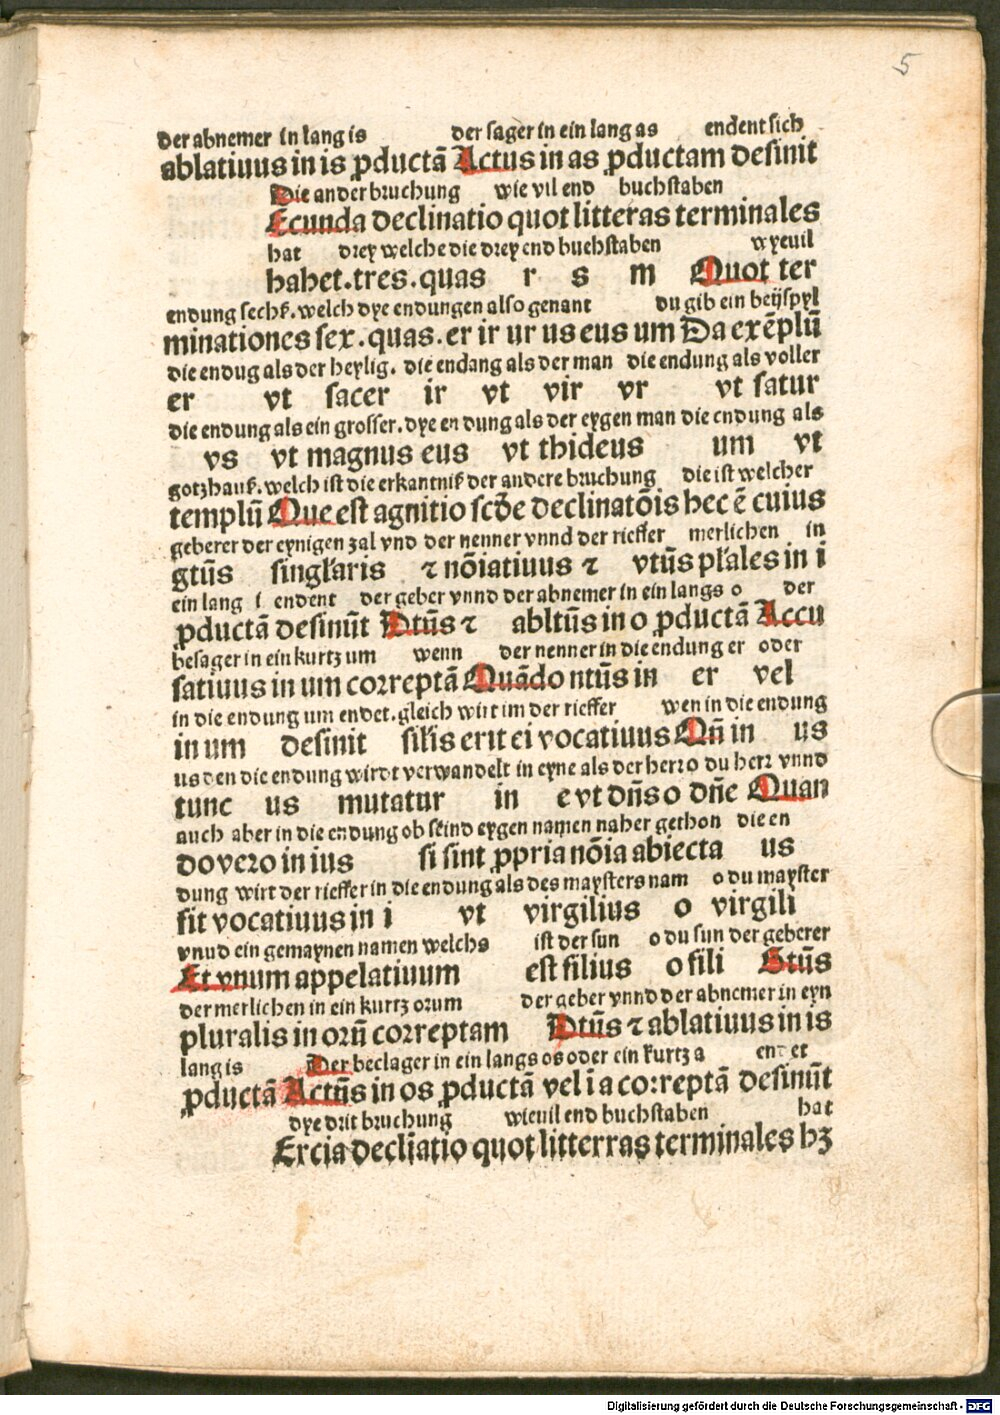 5
der abnemer in lang is der sager in ein lang as endent sich
ablatiuus in is ꝓductā Actus in as ꝓductam desinit
Die ander bruchung wie vil end buchstaben
Ecunda declinatio quot litteras terminales
hat drey welche die drey end buehstaben wyeuil
habet.tres.quas r s m Quot ter
endung sechß.welch dye endungen also genant du gib ein beyspyl
minationes sex.quas.er ir ur us eus um Da exēplū
die endug als der heylig. die endang als der man die endung als voller
er vt sacer ir vt vir vr vt satur
die endung als ein grosser.dye en dung als der eygen man die endung als
vs vt magnus eus vt thideus um vt
gotzhauß.welch ist die erkantniß der andere bruchung die ist welcher
templū Que est agnitio scd̄e declinatōis hec ē cuius
geberer der eynigen zal vnd der nenner vnnd der rieffer merlichen in
gtūs singl̄aris ⁊ nōiatiuus ⁊ vtūs pl̄ales in i
ein lang i endent der geber vnnd der abnemer in ein langs o der
ꝓductā desinūt Dtūs ⁊ abltūs in o ꝓductā Accu
besager in ein kurtz um wenn der nenner in die endung er oder
satiuus in um correptā Quādo ntūs in er vel
in die endung um endet.gleich wirt im der rieffer wen in die endung
in um desinit sil̄is erit ei vocatiuus Qn̄ in us
us den die endung wirdt verwandelt in eyne als der herr o du herr vnnd
tunc us mutatur in e vt dn̄s o dn̄e Quan
auch aber in die endung ob seind eygen namen naher gethon die en
do vero in ius si sint ꝓpria nōia abiecta us
dung wirt der rieffer in die endung als des maysters nam o du mayster
fit vocatiuus in i vt virgilius o virgili
vnnd ein gemaynen namen welchs ist der sun o du sun der geberer
Et vnum appelatiuum est filius o fili Gtūs
der merlichen in ein kurtz orum der geber vnnd der abnemer in eyn
pluralis in orū correptam Dtūs ⁊ ablatiuus in is
lang is Der beclager in ein langs os oder ein kurtz a endet
ꝓductā Actūs in os ꝓductā vel ī a correptā desinūt
dye drit bruchung wieuil end buchstaben hat
Ercia declīatio quot litterras terminales hꝫ
Digitalisierung gefördert durch die Deutsche Forschungsgemeinschaft - DFG